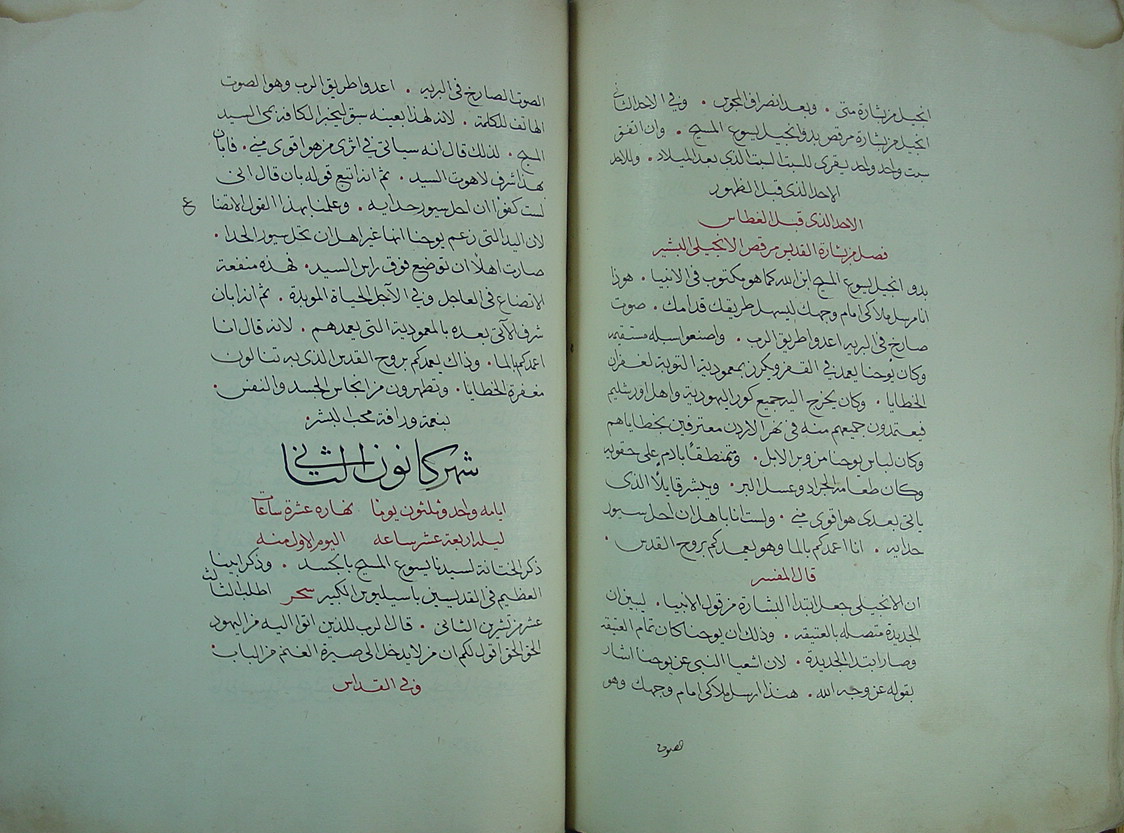 انجيل من بشارة متى . وبعد انصراف المجوس . وفي الاحد الثاني
انجيل من بشارة مرقص بدو انجيل يسوع المسيح . وان اتفق
سبت واحد واحد يقرى للسبت السبت الذي بعد الميلاد . وللاحد
الاحد الذي قبل الظهور
الاحد الذي قبل الغطاس
فصل من بشارة القديس مرقص الانجيلي البشير
بدو انجيل يسوع المسيح ابن الله كما هو مكتوب في الانبيا . هوذا
انا مرسل ملاكي امام وجهك ليسهل طريقك قدامك . صوت
صارخ في البريه اعدوا طريق الرب . واصنعوا سبله مستقيمه
وكان يوحنا يعمد في القفر ويكرز بمعمودية التوبة لغفران
الخطايا . وكان يخرج اليه جميع كور اليهودية واهل اورشليم
فيعتمدون جميعهم منه في نهر الاردن معترفين بخطاياهم
وكان لباس يوحنا من وبر الابل . ومتمنطقًا بادم على حقويه
وكان طعامه الجراد وعسل البر . ويبشر قايلًا الذي
ياتي بعدي هو اقوى مني . ولست انا باهل ان احل سيور
حدايه . انا اعمدكم بالما وهو يعمدكم بروح القدس .
قال المفسر
ان الانجيلي جعل ابتدا البشارة من قول الانبيا . ليبين ان
الجديدة متصله بالعتيقه . وذلك ان يوحنا كان تمام العتيقه
وصار ابتدا الجديدة . لان اشعيا النبي عن يوحنا اشار
بقوله عن وجه الله . هنذا ارسل ملاكي امام وجهك وهو
الصوت
الصوت الصارخ في البريه . اعدوا طريق الرب وهو الصوت
الهاتف للكلمة . لانه لهذا بعينه سبق ليخبر الكافة بمجي السيد
المسيح . لذلك قال انه سياتي في اثري من هو اقوى مني . فابان
بهذا شرف لاهوت السيد . ثم انه اتبع قوله بان قال اني
لست كفوًا ان احل سيور حدايه . وعلمنا بهذا القول الاتضا
ع
لان اليد التي زعم يوحنا انها غير اهل ان تحل سيور الحدا .
صارت اهلًا ان توضع فوق راس السيد . فهذه منفعة
الاتضاع في العاجل وفي الآجل الحياة الموبدة . ثم انه ابان
شرف الآتي بعده بالمعودية التي يعمدهم . لانه قال انا
اعمدكم بالما . وذاك يعمدكم بروح القدس الذي به تنالون
مغفرة الخطايا . وتطهرون من انجاس الجسد والنفس .
بنعمة ورافة محب البشر .
شهر كانون الثاني
ايامه واحد وثلثون يومًا نهاره عشرة ساعات
ليله اربعة عشر ساعه اليوم الاول منه
ذكر الختانة لسيدنا يسوع المسيح بالجسد . وذكر ابينا
العظيم في القديسين باسيليوس الكبير سحر اطلبه الثالث
عشر من تشرين الثاني . قال الرب للذين اتوا اليه من اليهود
الحق الحق اقول لكم ان من لا يدخل الى صيرة الغنم من الباب .
وفي القداس